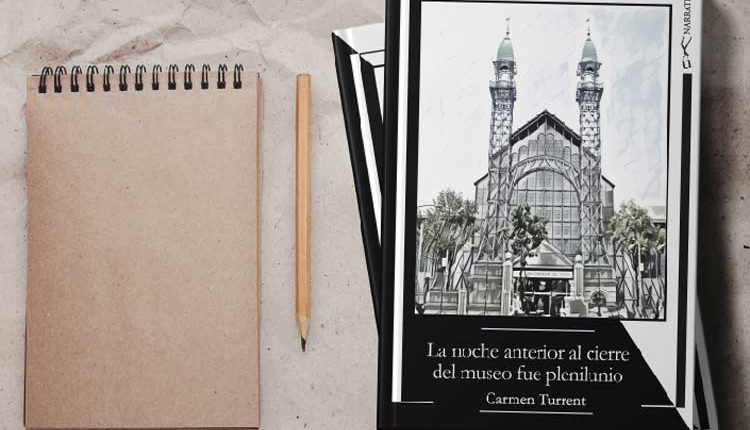 NARRATI
La noche anterior al cierre
del museo fue plenilunio
Carmen Turrent